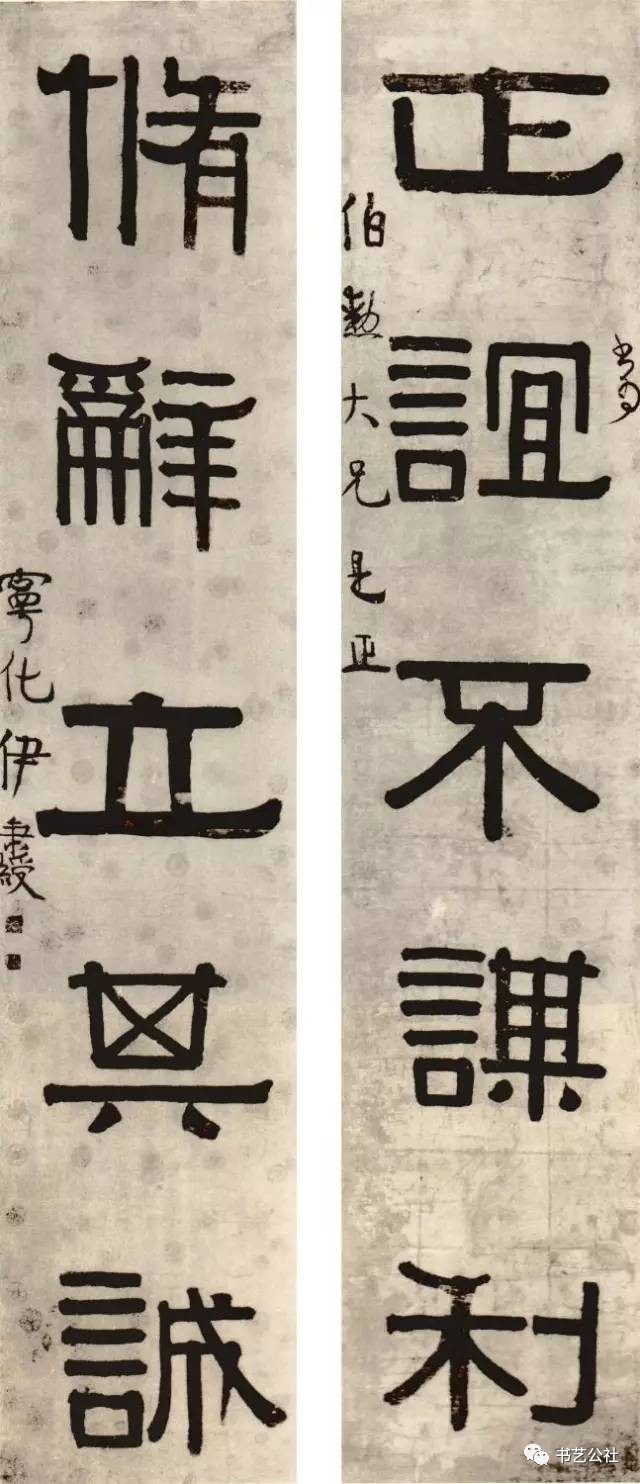 正誼不謀利
書為
伯勲大兄是正
脩辭立其誠
寧化伊秉綬
书艺公社